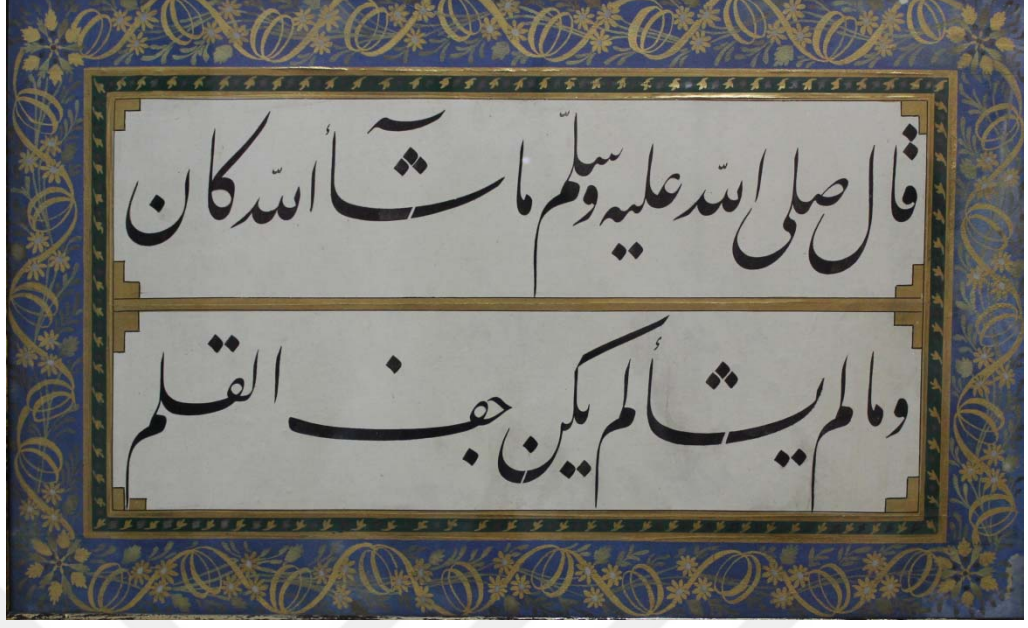 قال صلى الله عليه وسلّم ما شآأ الله كان
وما لم يشأ لم يكن جف القلم